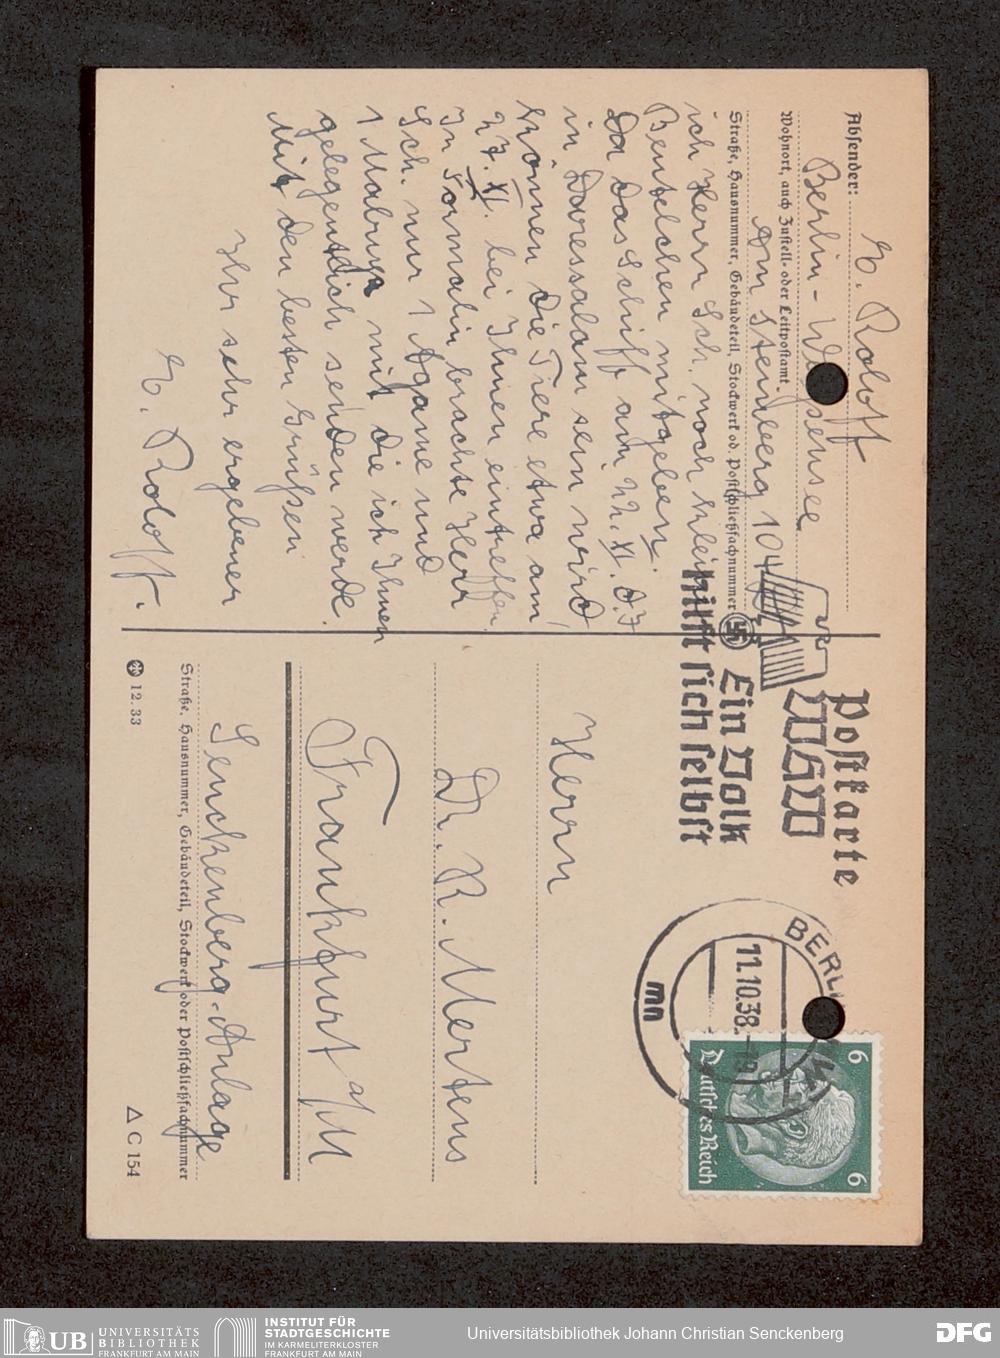 Absender: E. Roloff
Berlin-Weissensee
Wohnort, auch Zustell- oder Leitpostamt
Am Steinberg 104
Straße, Hausnummer, Gebäudeteil, Stockwerk od. Postschließfachnummer
ich Herrn Sch. noch kleine
Beutelchen mitgeben.
Da das Schiff am 22. XI. d. J
in Daressalam sein wird,
können die Tiere etwa am
27. XI. bei Ihnen eintreffen.
In Formalin brachte Herr
Sch. nur 1 Agame und
1 Mabuya mit die ich Ihnen
gelegentlich senden werde.
Mit den besten Grüßen
Ihr sehr ergebener
E. Roloff.
Postkarte
WHW
Ein Volk
hilft sich selbst
BERLIN
11.10.38
mn
6 6
Deutsches Reich
Herrn
Dr. R. Mertens
Frankfurt a/M
Senckenberg-Anlage
Straße, Hausnummer, Gebäudeteil, Stockwerk oder Postschließfachnummer
12. 33
Δ C 154
UB UNIVERSITÄTS
BIBLIOTHEK
FRANKFURT AM MAIN
INSTITUT FÜR
STADTGESCHICHTE
IM KARMELITERKLOSTER
FRANKFURT AM MAIN
Universitätsbibliothek Johann Christian Senckenberg
DFG